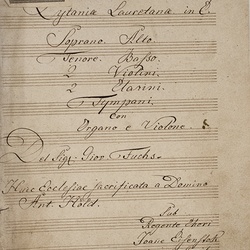 Lytaniæ Lauretanæ in C.
Soprano. Alto.
Tenore. Basso.
2 Violini.
2 Clarini.
Tympani.
Con
Organo e Violone.
Del Sigr. Gior. Fuchs.
Huic Ecclesiae sacrificata a Domino
Ant. Höld.
Sub
Regente Chori